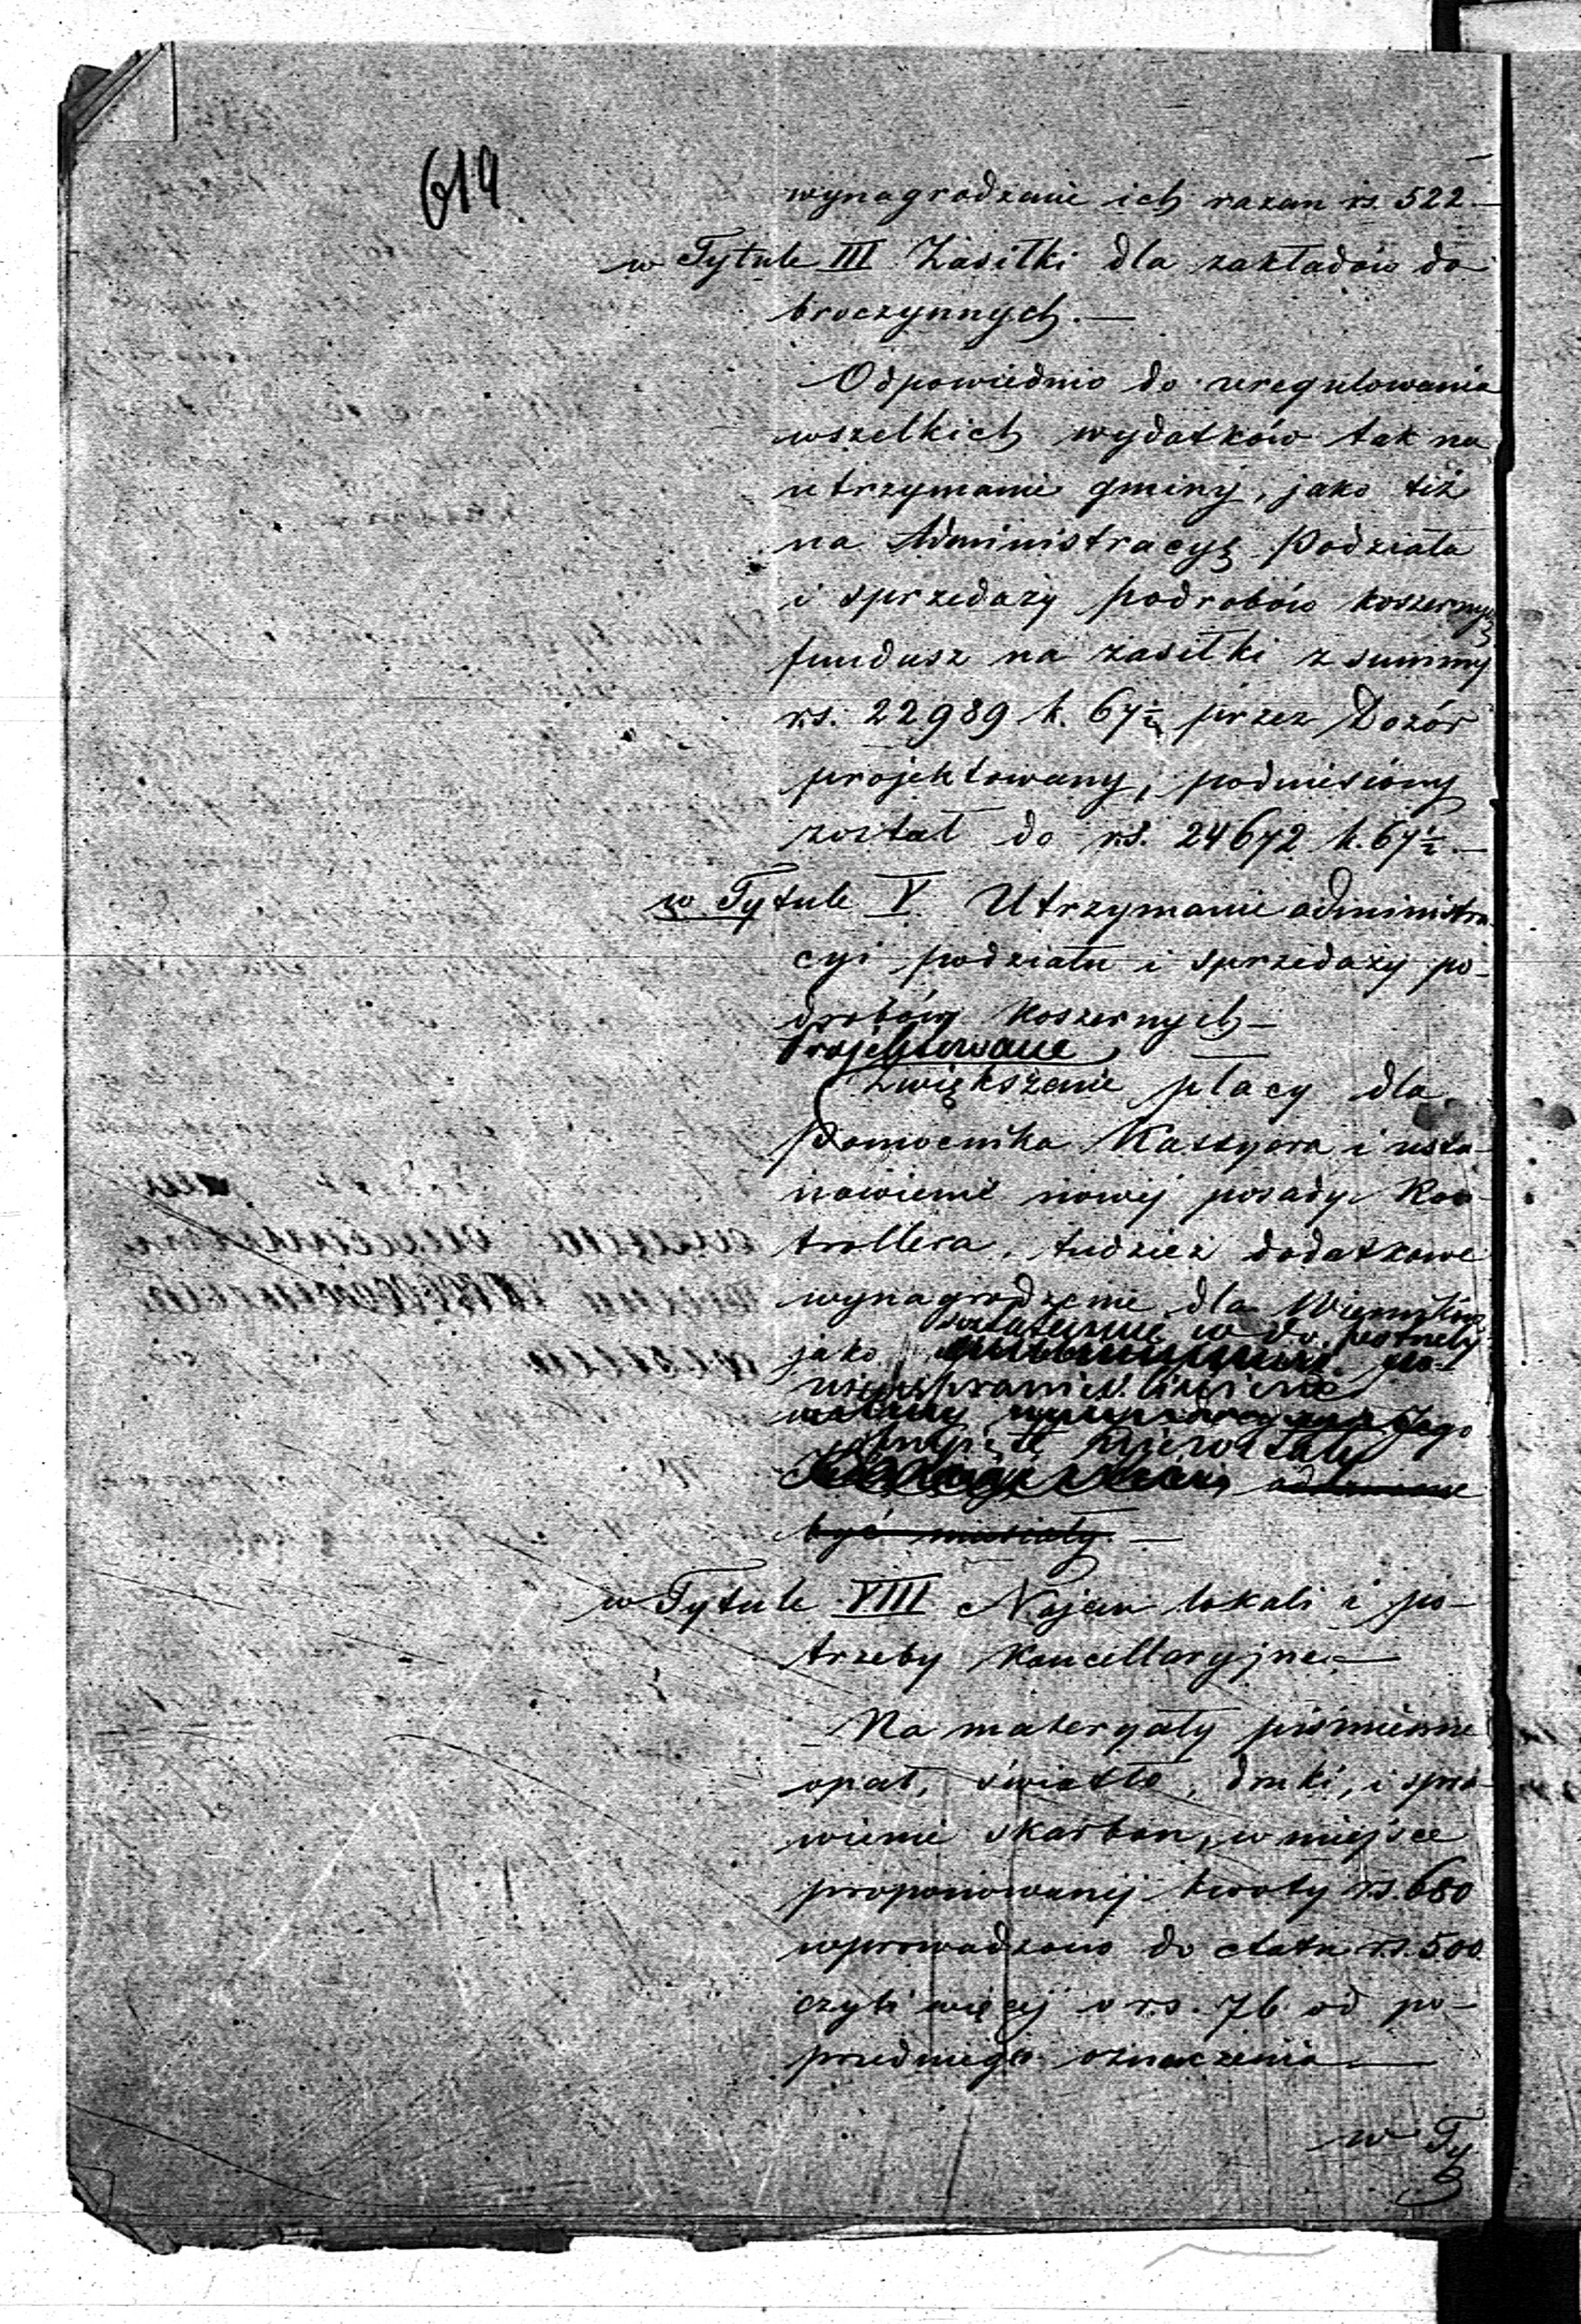 619
wynagrodzenie ich razem rs. 522.—
w Tytule III Zasiłki dla zakładów do
broczynnych.—
Odpowiednio do uregulowania
wszelkich wydatków tak na
utrzymanie gminy, jako też
na Administracyę Podziału
i sprzedaży podrobów koszernych
fundusz na zasiłki z summy
rs. 22989 k. 67½ przez Dozór
projektowany, podniesiony
został do rs. 24672 k. 67½.—
w Tytule V. Utrzymanie administra
cyi podziału i sprzedaży po-
drobów Koszernych—
Projektowane
Zwiększenie płacy dla
Pomocnika Kassyera i usta-
nowienie nowej posady Kon-
trollera, tudzież dodatkowe
wynagrodzenie dla
jako
być musiały.—
w Tytule VIII Najem lokali i po-
trzeby Kancellaryjne.—
Na materyały piśmienne
opał, światło, druki, i spra-
wienie skarbon, w miejsce
proponowanej kwoty rs. 680
wprowadzono do etatu rs. 500
czyli więcej o rs. 76 od po-
przedniego oznaczenia—
w Ty